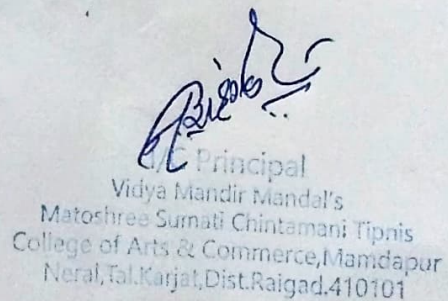 I/C Principal
Vidya Mandir Mandal's
Matoshree Sumati Chintamani Tipnis
College of Arts & Commerce,Mamdapur
Neral,Tal.Karjat,Dist.Raigad.410101